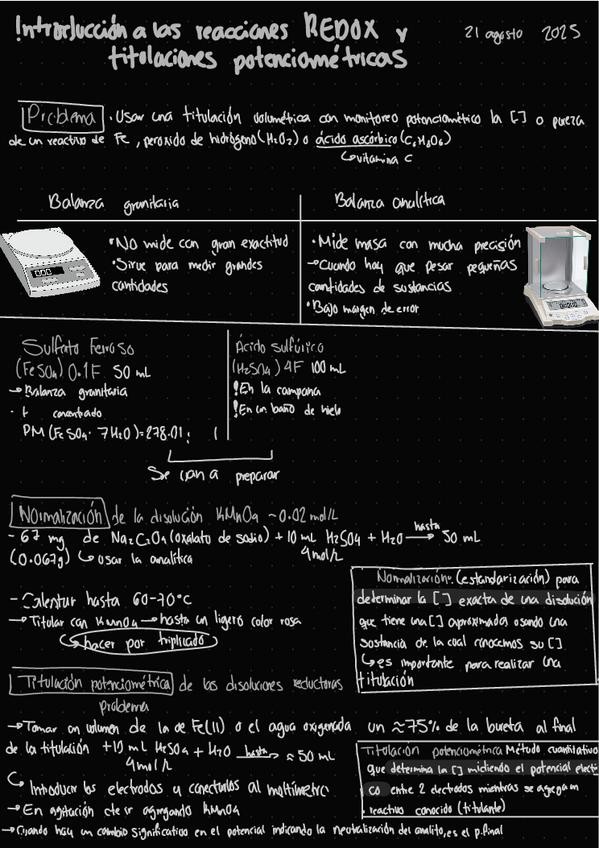 Introducción a las reacciones REDOX y
titulaciones potenciométricas
21 agosto 2025
Problema • Usar una titulación volumétrica con monitoreo potenciométrico la [] o pureza
de un reactivo de Fe, peroxido de hidrógeno (H2O2) o ácido ascórbico (C6H8O6)
↳ vitamina C
Balanza granitaria
• No mide con gran exactitud
• Sirve para medir grandes
cantidades
Balanza analítica
• Mide masa con mucha precisión
→ Cuando hay que pesar pequeñas
cantidades de sustancias
• Bajo margen de error
Sulfato Ferroso
(FeSO4) 0.1F 50 mL
→ Balanza granitaria
concentrado
PM(FeSO4 · 7H2O)=278.01
Ácido sulfúrico
(H2SO4) 4F 100 mL
! En la campana
! En un baño de hielo
Se van a preparar
Normalización de la disolución KMnO4 ~0.02 mol/L
- 67 mg de Na2C2O4 (oxalato de sodio) + 10 mL H2SO4 + H2O hasta → 50 mL
(0.067g) ↳ usar la analítica 4mol/L
- Calentar hasta 60-70°C
→ Titular con KMnO4 → hasta un ligero color rosa
↳ hacer por triplicado
Normalización: (estandarización) para
determinar la [] exacta de una disolución
que tiene una [] aproximada usando una
sustancia de la cual conocemos su []
↳ es importante para realizar una
titulación
Titulación potenciométrica de las disoluciones reductoras
problema
→ Tomar un volumen de la de Fe(II) o el agua oxigenada un ≈75% de la bureta al final
de la titulación +10 mL H2SO4 + H2O hasta → ≈ 50 mL
4mol/L
↳ Introducir los electrodos y conectarlos al multímetro
→ En agitación ir agregando KMnO4
→ Cuando hay un cambio significativo en el potencial indicando la neutralización del analito, es el p.final
Titulación potenciométrica Método cuantitativo
que determina la [] midiendo el potencial eléctri
co entre 2 electrodos mientras se agregan
reactivo conocido (titulante)